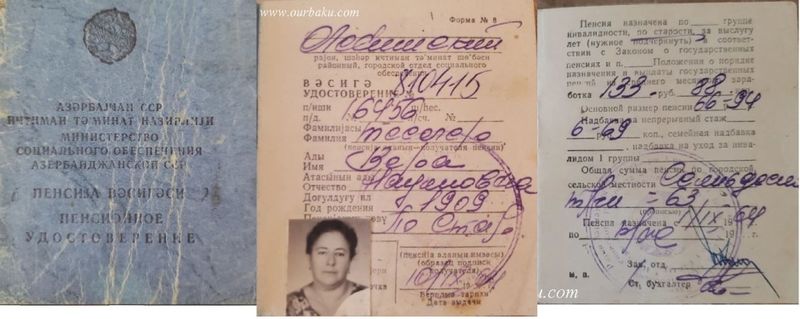 www.ourbaku.com
АЗӘРБАЈҸАН ССР
ИҸТИМАИ ТӘ'МИНАТ НАЗИРЛИЈИ
МИНИСТЕРСТВО
СОЦИАЛЬНОГО ОБЕСПЕЧЕНИЯ
АЗЕРБАЙДЖАНСКОЙ ССР
ПЕНСИЈА ВӘСИГӘСИ
ПЕНСИОННОЕ
УДОСТОВЕРЕНИЕ
Форма № 8
рајон, шәһәр иҹтимаи тә'минат шө'бәси
районный, городской отдел социального
обеспечения
ВӘСИГӘ
УДОСТОВЕРЕНИЕ 810415
п/иши
п/д. 6456 №
Фамилијасы
Фамилия
(пенсија аланын—получателя пенсии)
Ады
Имя Вера
Атасынын ады
Отчество Наумовна
Доғулдуғу ил
Год рождения 1909
По стар
(пенсија аланын имзасы)
(образец подписи
получателя)
10/IX 64
Верилмә тарихи
Дата выдачи
Пенсия назначена по группе
инвалидности, по старости, за выслугу
лет (нужное подчеркнуть) в соответ-
ствии с Законом о государственных
пенсиях и п. Положения о порядке
назначения и выплаты государственных
пенсий
ботка 133 руб. 88
Основной размер пенсии 66-94
Надбавка за непрерывный стаж
6-69 коп., семейная надбавка
, надбавка на уход за инва-
лидом I группы
Общая сумма пенсии по городской
сельской местности Семьдесят
три - 63
(прописью)
Пенсия назначена с 1/IX 64
по 19 г.
Зав. отд.
м. п.
Ст. бухгалтер
www.ourbaku.com